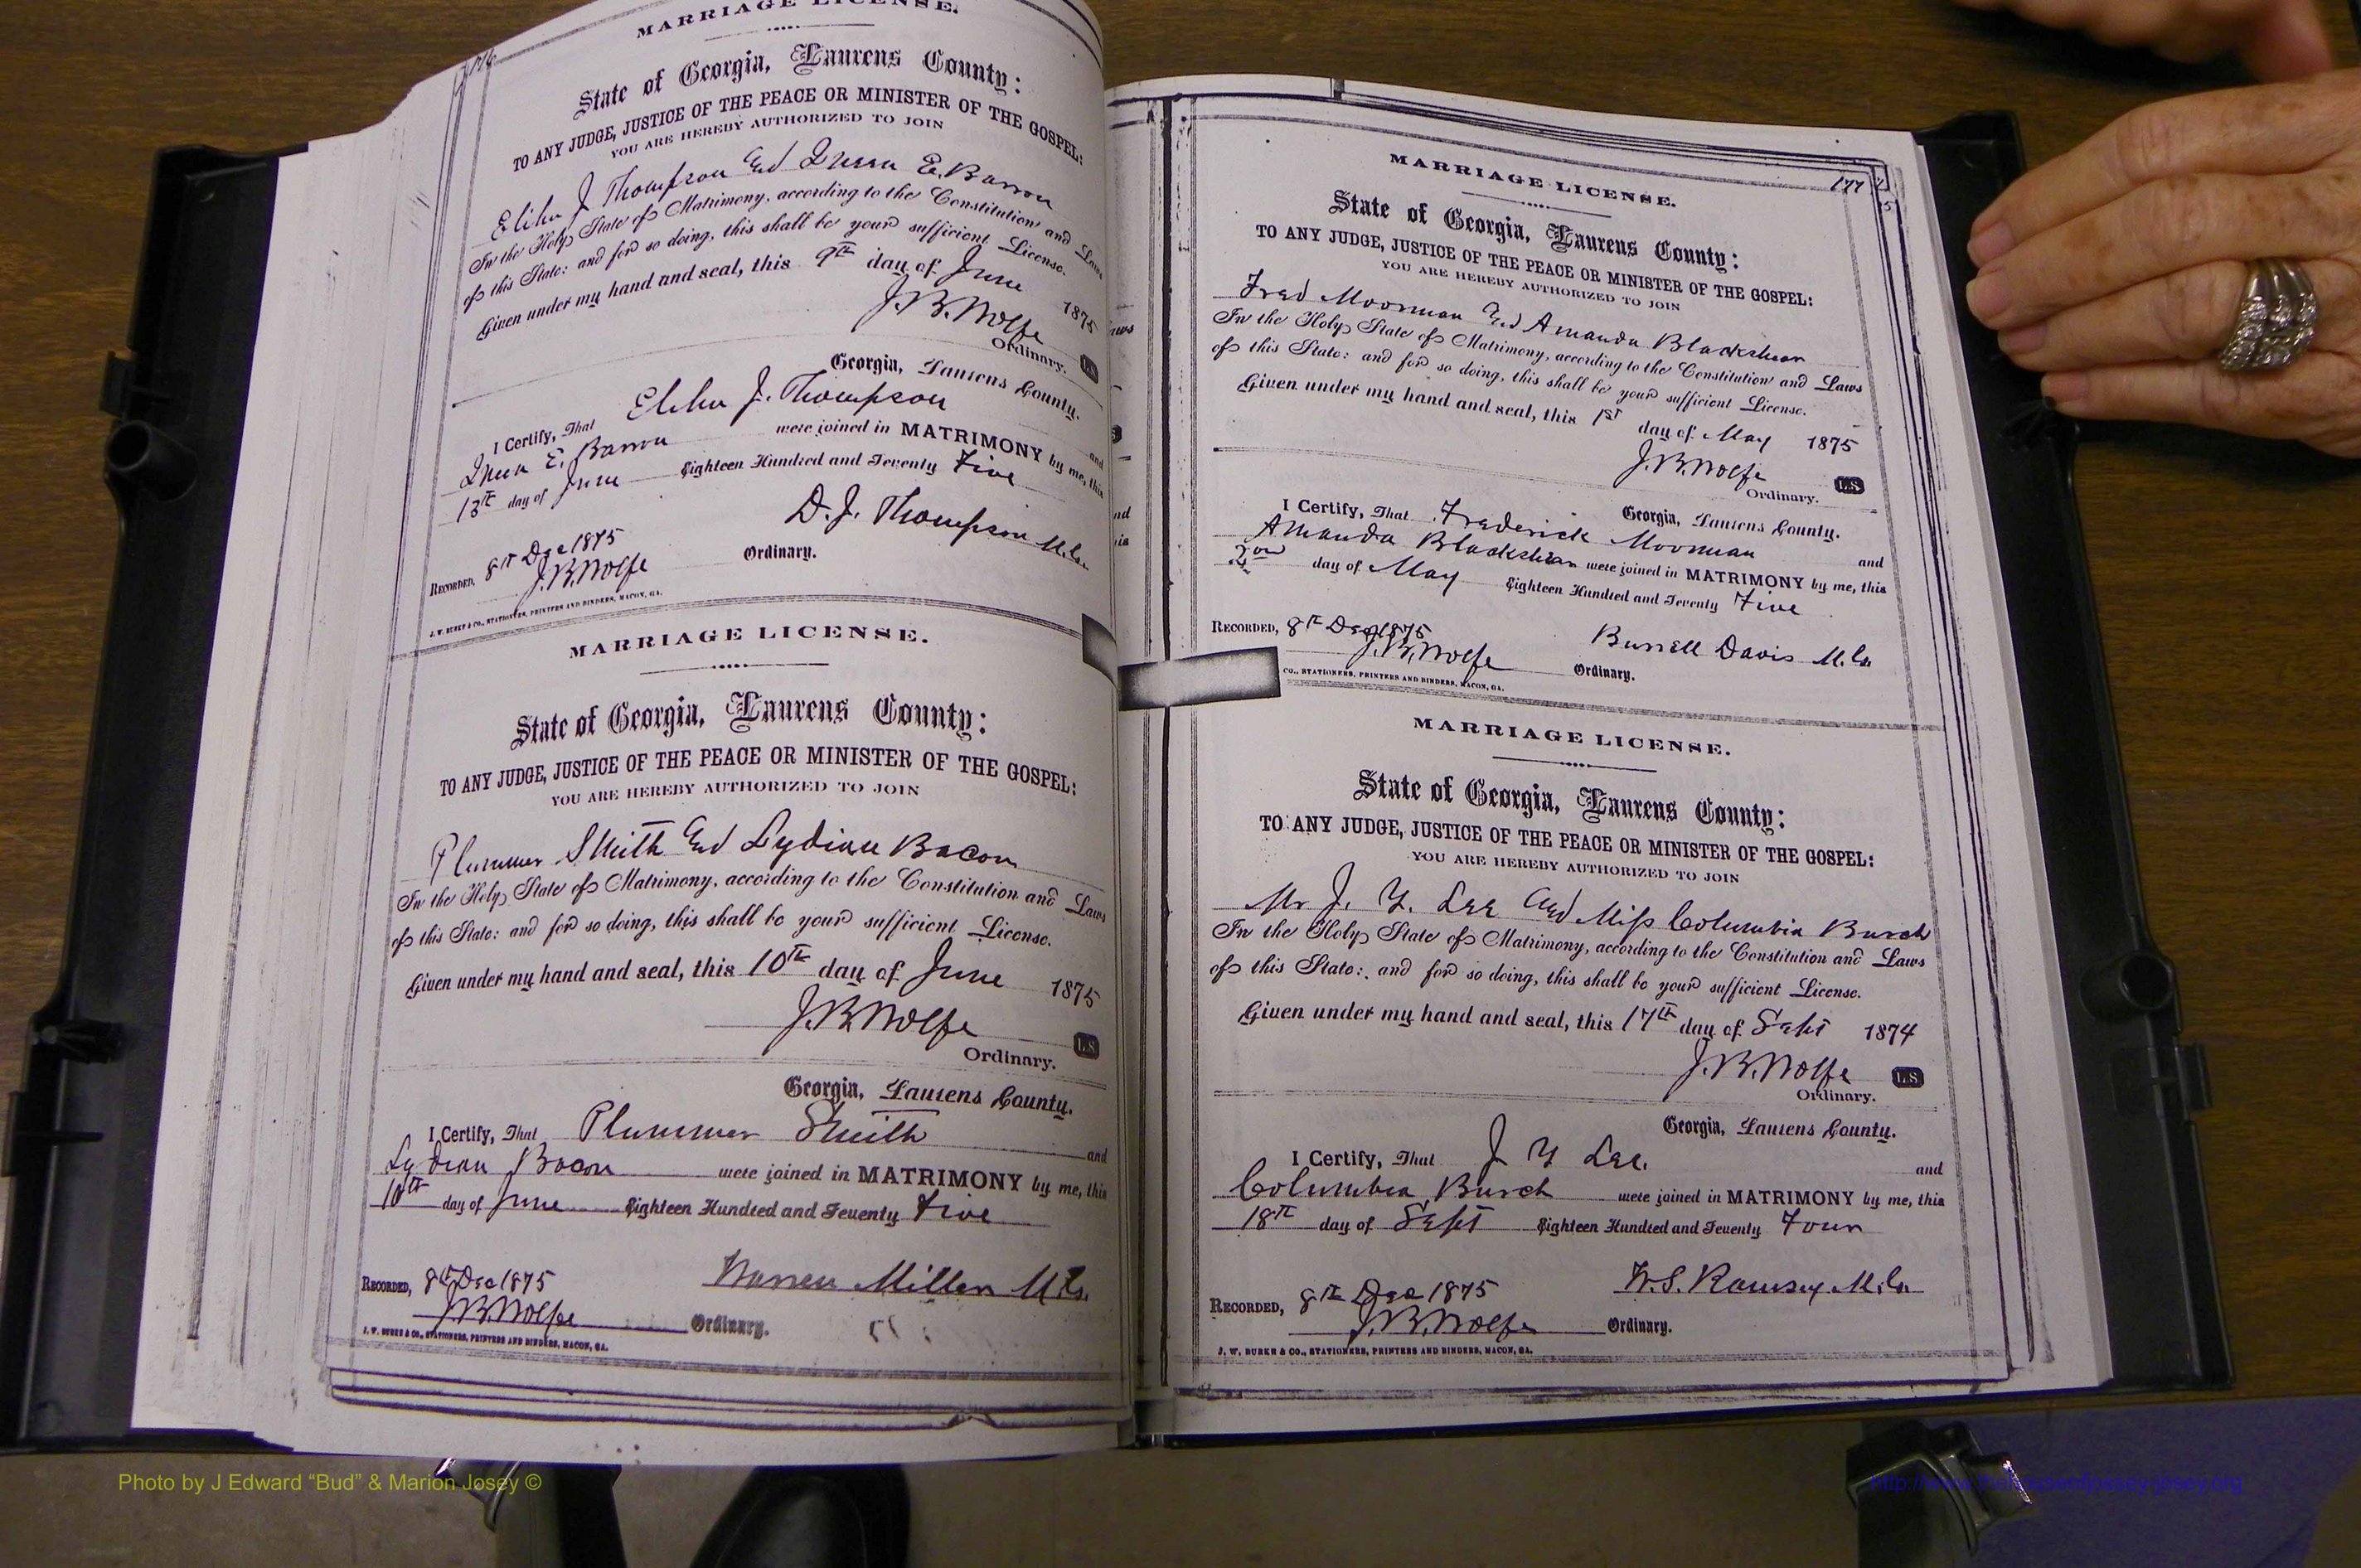 176
MARRIAGE LICENSE.
State of Georgia, Laurens County:
TO ANY JUDGE, JUSTICE OF THE PEACE OR MINISTER OF THE GOSPEL:
YOU ARE HEREBY AUTHORIZED TO JOIN
Elihu J Thompson And E. Barron
In the Holy State of Matrimony, according to the Constitution and Laws
of this State: and for so doing, this shall be your sufficient License.
Given under my hand and seal, this 9th day of June 1875
J.B. Wolfe
Ordinary. L.S.
Georgia, Laurens County.
I Certify, That Elihu J. Thompson and
E. Barron were joined in MATRIMONY by me, this
13th day of June Eighteen Hundred and Seventy Five
D. J. Thompson M.G.
RECORDED, 8th Dec 1875
J.B. Wolfe Ordinary.
J. W. BURKE & CO., STATIONERS, PRINTERS AND BINDERS, MACON, GA.
MARRIAGE LICENSE.
State of Georgia, Laurens County:
TO ANY JUDGE, JUSTICE OF THE PEACE OR MINISTER OF THE GOSPEL:
YOU ARE HEREBY AUTHORIZED TO JOIN
Plummer Smith And Lydian Bacon
In the Holy State of Matrimony, according to the Constitution and Laws
of this State: and for so doing, this shall be your sufficient License.
Given under my hand and seal, this 10th day of June 1875
J.B. Wolfe
Ordinary. L.S.
Georgia, Laurens County.
I Certify, That Plummer Smith and
Lydian Bacon were joined in MATRIMONY by me, this
10th day of June Eighteen Hundred and Seventy Five
Warren Miller
RECORDED, 8th Dec 1875
J.B. Wolfe Ordinary.
J. W. BURKE & CO., STATIONERS, PRINTERS AND BINDERS, MACON, GA.
177
MARRIAGE LICENSE.
State of Georgia, Laurens County:
TO ANY JUDGE, JUSTICE OF THE PEACE OR MINISTER OF THE GOSPEL:
YOU ARE HEREBY AUTHORIZED TO JOIN
Fred Moorman And Amanda Blackshear
In the Holy State of Matrimony, according to the Constitution and Laws
of this State: and for so doing, this shall be your sufficient License.
Given under my hand and seal, this 1st day of May 1875
J.B. Wolfe
Ordinary. L.S.
Georgia, Laurens County.
I Certify, That Frederick Moorman and
Amanda Blackshear were joined in MATRIMONY by me, this
2nd day of May Eighteen Hundred and Seventy Five
Burrell Davis M.G.
RECORDED, 8th Dec 1875
J.B. Wolfe Ordinary.
CO., STATIONERS, PRINTERS AND BINDERS, MACON, GA.
MARRIAGE LICENSE.
State of Georgia, Laurens County:
TO ANY JUDGE, JUSTICE OF THE PEACE OR MINISTER OF THE GOSPEL:
YOU ARE HEREBY AUTHORIZED TO JOIN
Mr J. Y. Lee And Miss Columbia Burch
In the Holy State of Matrimony, according to the Constitution and Laws
of this State: and for so doing, this shall be your sufficient License.
Given under my hand and seal, this 17th day of Sept 1874
J.B. Wolfe
Ordinary. L.S.
Georgia, Laurens County.
I Certify, That J Y Lee. and
Columbia Burch were joined in MATRIMONY by me, this
18th day of Sept Eighteen Hundred and Seventy Four
W.S. Ramsey M.G.
RECORDED, 8th Dec 1875
J.B. Wolfe Ordinary.
J. W. BURKE & CO., STATIONERS, PRINTERS AND BINDERS, MACON, GA.
Photo by J Edward “Bud” & Marion Josey ©
http://www.thehouseofjossey-josey.org